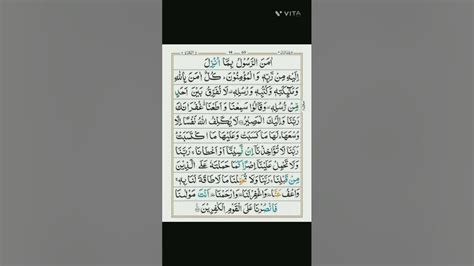 VITA
اٰمَنَ الرَّسُوْلُ بِمَاۤ اُنْزِلَ
اِلَيْهِ مِنْ رَّبِّهٖ وَالْمُؤْمِنُوْنَ ؕ كُلٌّ اٰمَنَ بِاللّٰهِ
وَمَلٰٓئِكَتِهٖ وَكُتُبِهٖ وَرُسُلِهٖ ۟ لَا نُفَرِّقُ بَيْنَ اَحَدٍ
مِّنْ رُّسُلِهٖ ۟ وَقَالُوْا سَمِعْنَا وَاَطَعْنَا غُفْرَانَكَ
رَبَّنَا وَاِلَيْكَ الْمَصِيْرُ ۝ لَا يُكَلِّفُ اللّٰهُ نَفْسًا اِلَّا
وُسْعَهَا ؕ لَهَا مَا كَسَبَتْ وَعَلَيْهَا مَا اكْتَسَبَتْ ؕ
رَبَّنَا لَا تُؤَاخِذْنَاۤ اِنْ نَّسِيْنَاۤ اَوْ اَخْطَاْنَا ۚ رَبَّنَا
وَلَا تَحْمِلْ عَلَيْنَاۤ اِصْرًا كَمَا حَمَلْتَهٗ عَلَى الَّذِيْنَ
مِنْ قَبْلِنَا ۚ رَبَّنَا وَلَا تُحَمِّلْنَا مَا لَا طَاقَةَ لَنَا بِهٖ ۚ
وَاعْفُ عَنَّا ۥ وَاغْفِرْ لَنَا ۥ وَارْحَمْنَا ۥ اَنْتَ مَوْلٰىنَا
فَانْصُرْنَا عَلَى الْقَوْمِ الْكٰفِرِيْنَ ۝